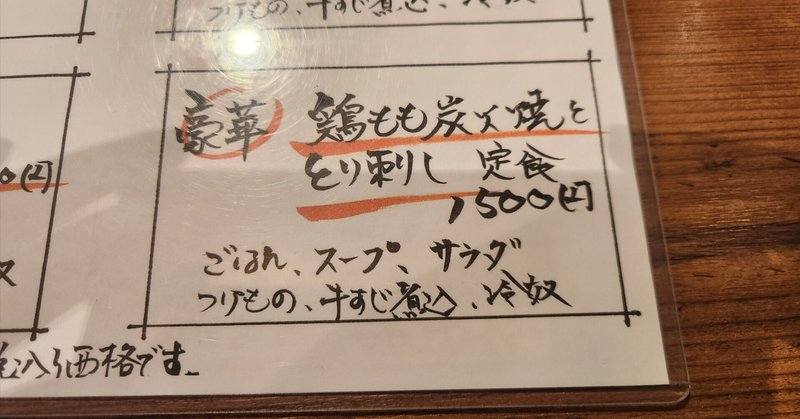 つけもの、牛すじ煮込、冷奴
豪華 鶏もも炭火焼と
とり刺し 定食
1500円
ごはん、スープ、サラダ
つけもの、牛すじ煮込、冷奴
0円
奴
込み価格です。